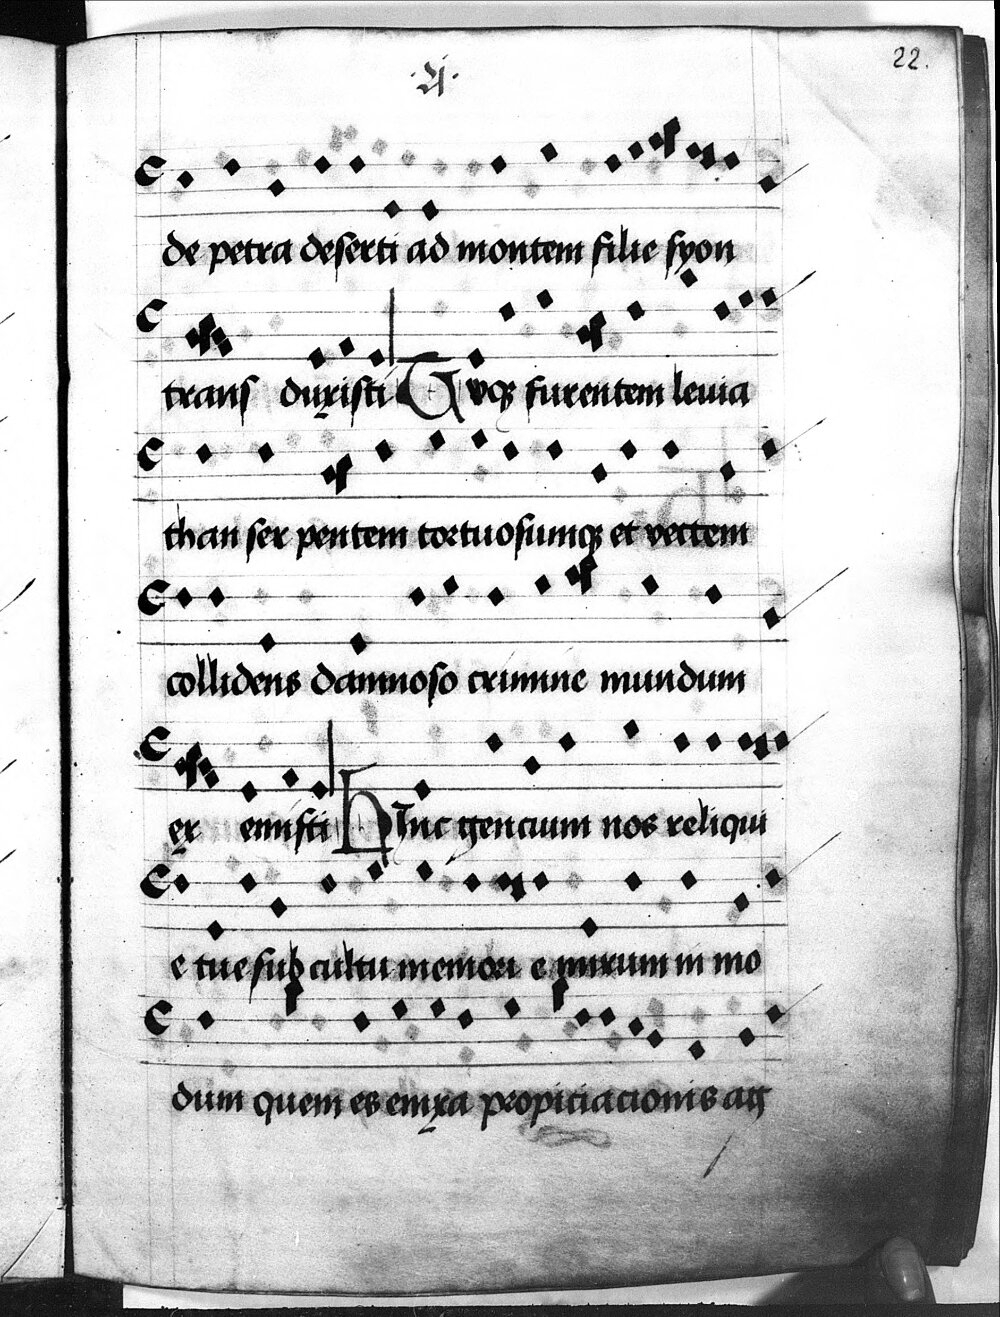 22.
de petra deserti ad montem filie syon
trans duxisti Tuq₃ furentem leuia
than ser pentem tortuosumq₃ et vectem
collidens damnoso crimine mundum
ex emisti Hinc gencium nos reliqui
e tue sub cultu memori e mirum in mo
dum quem es enixa propiciacionis ag